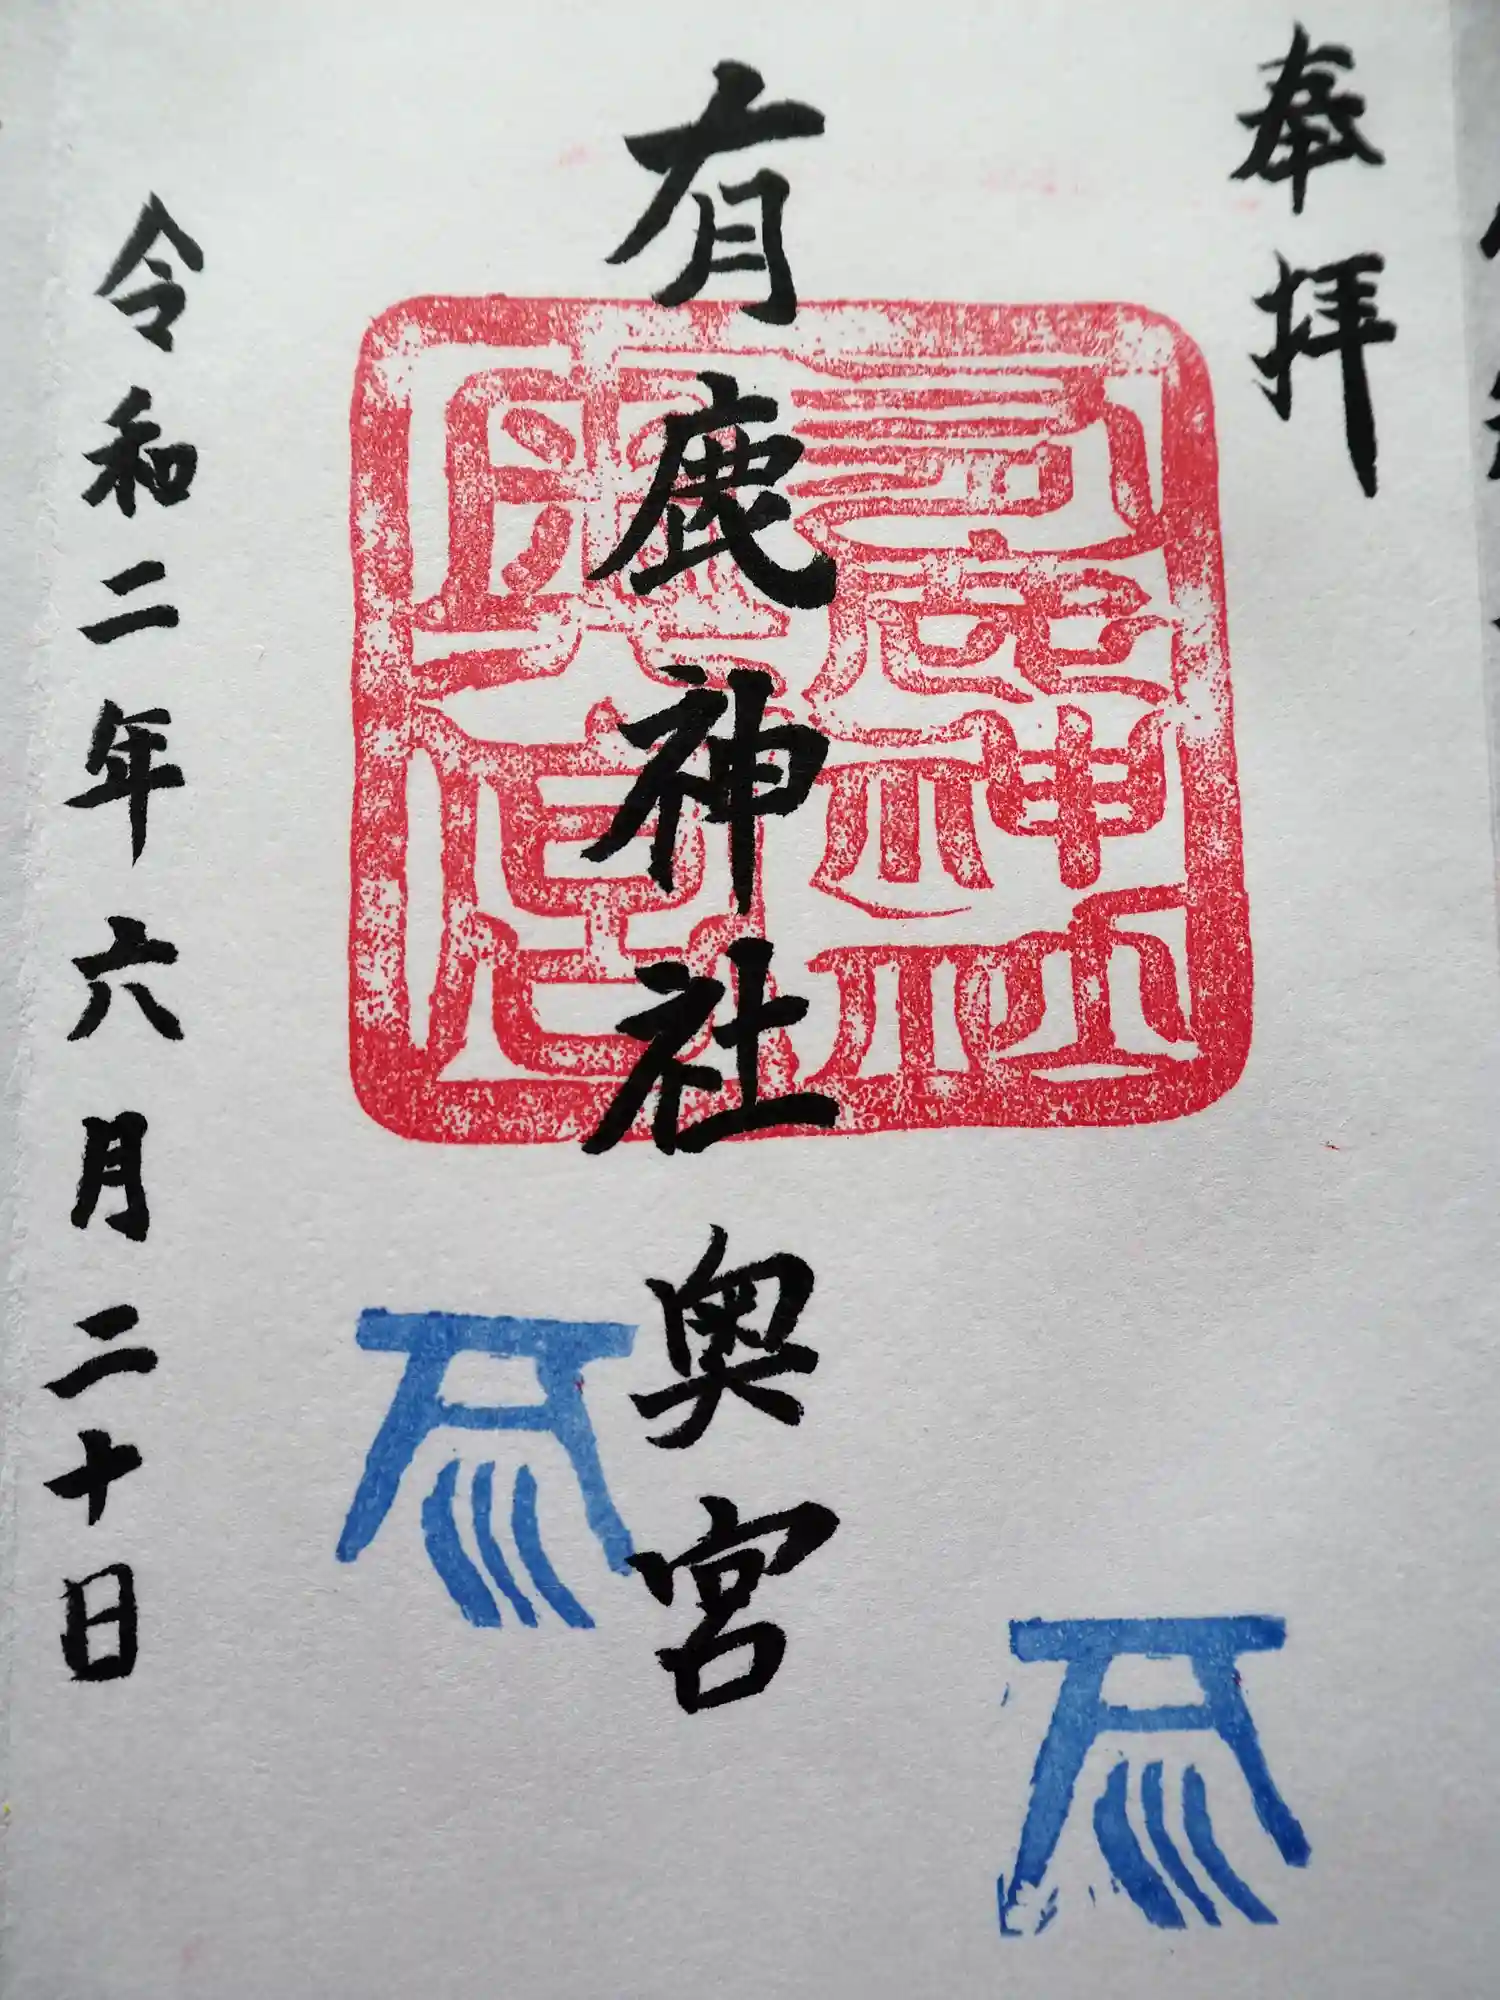 奉拝
有鹿神社奥宮
有鹿神社
奥宮
令和二年六月二十日